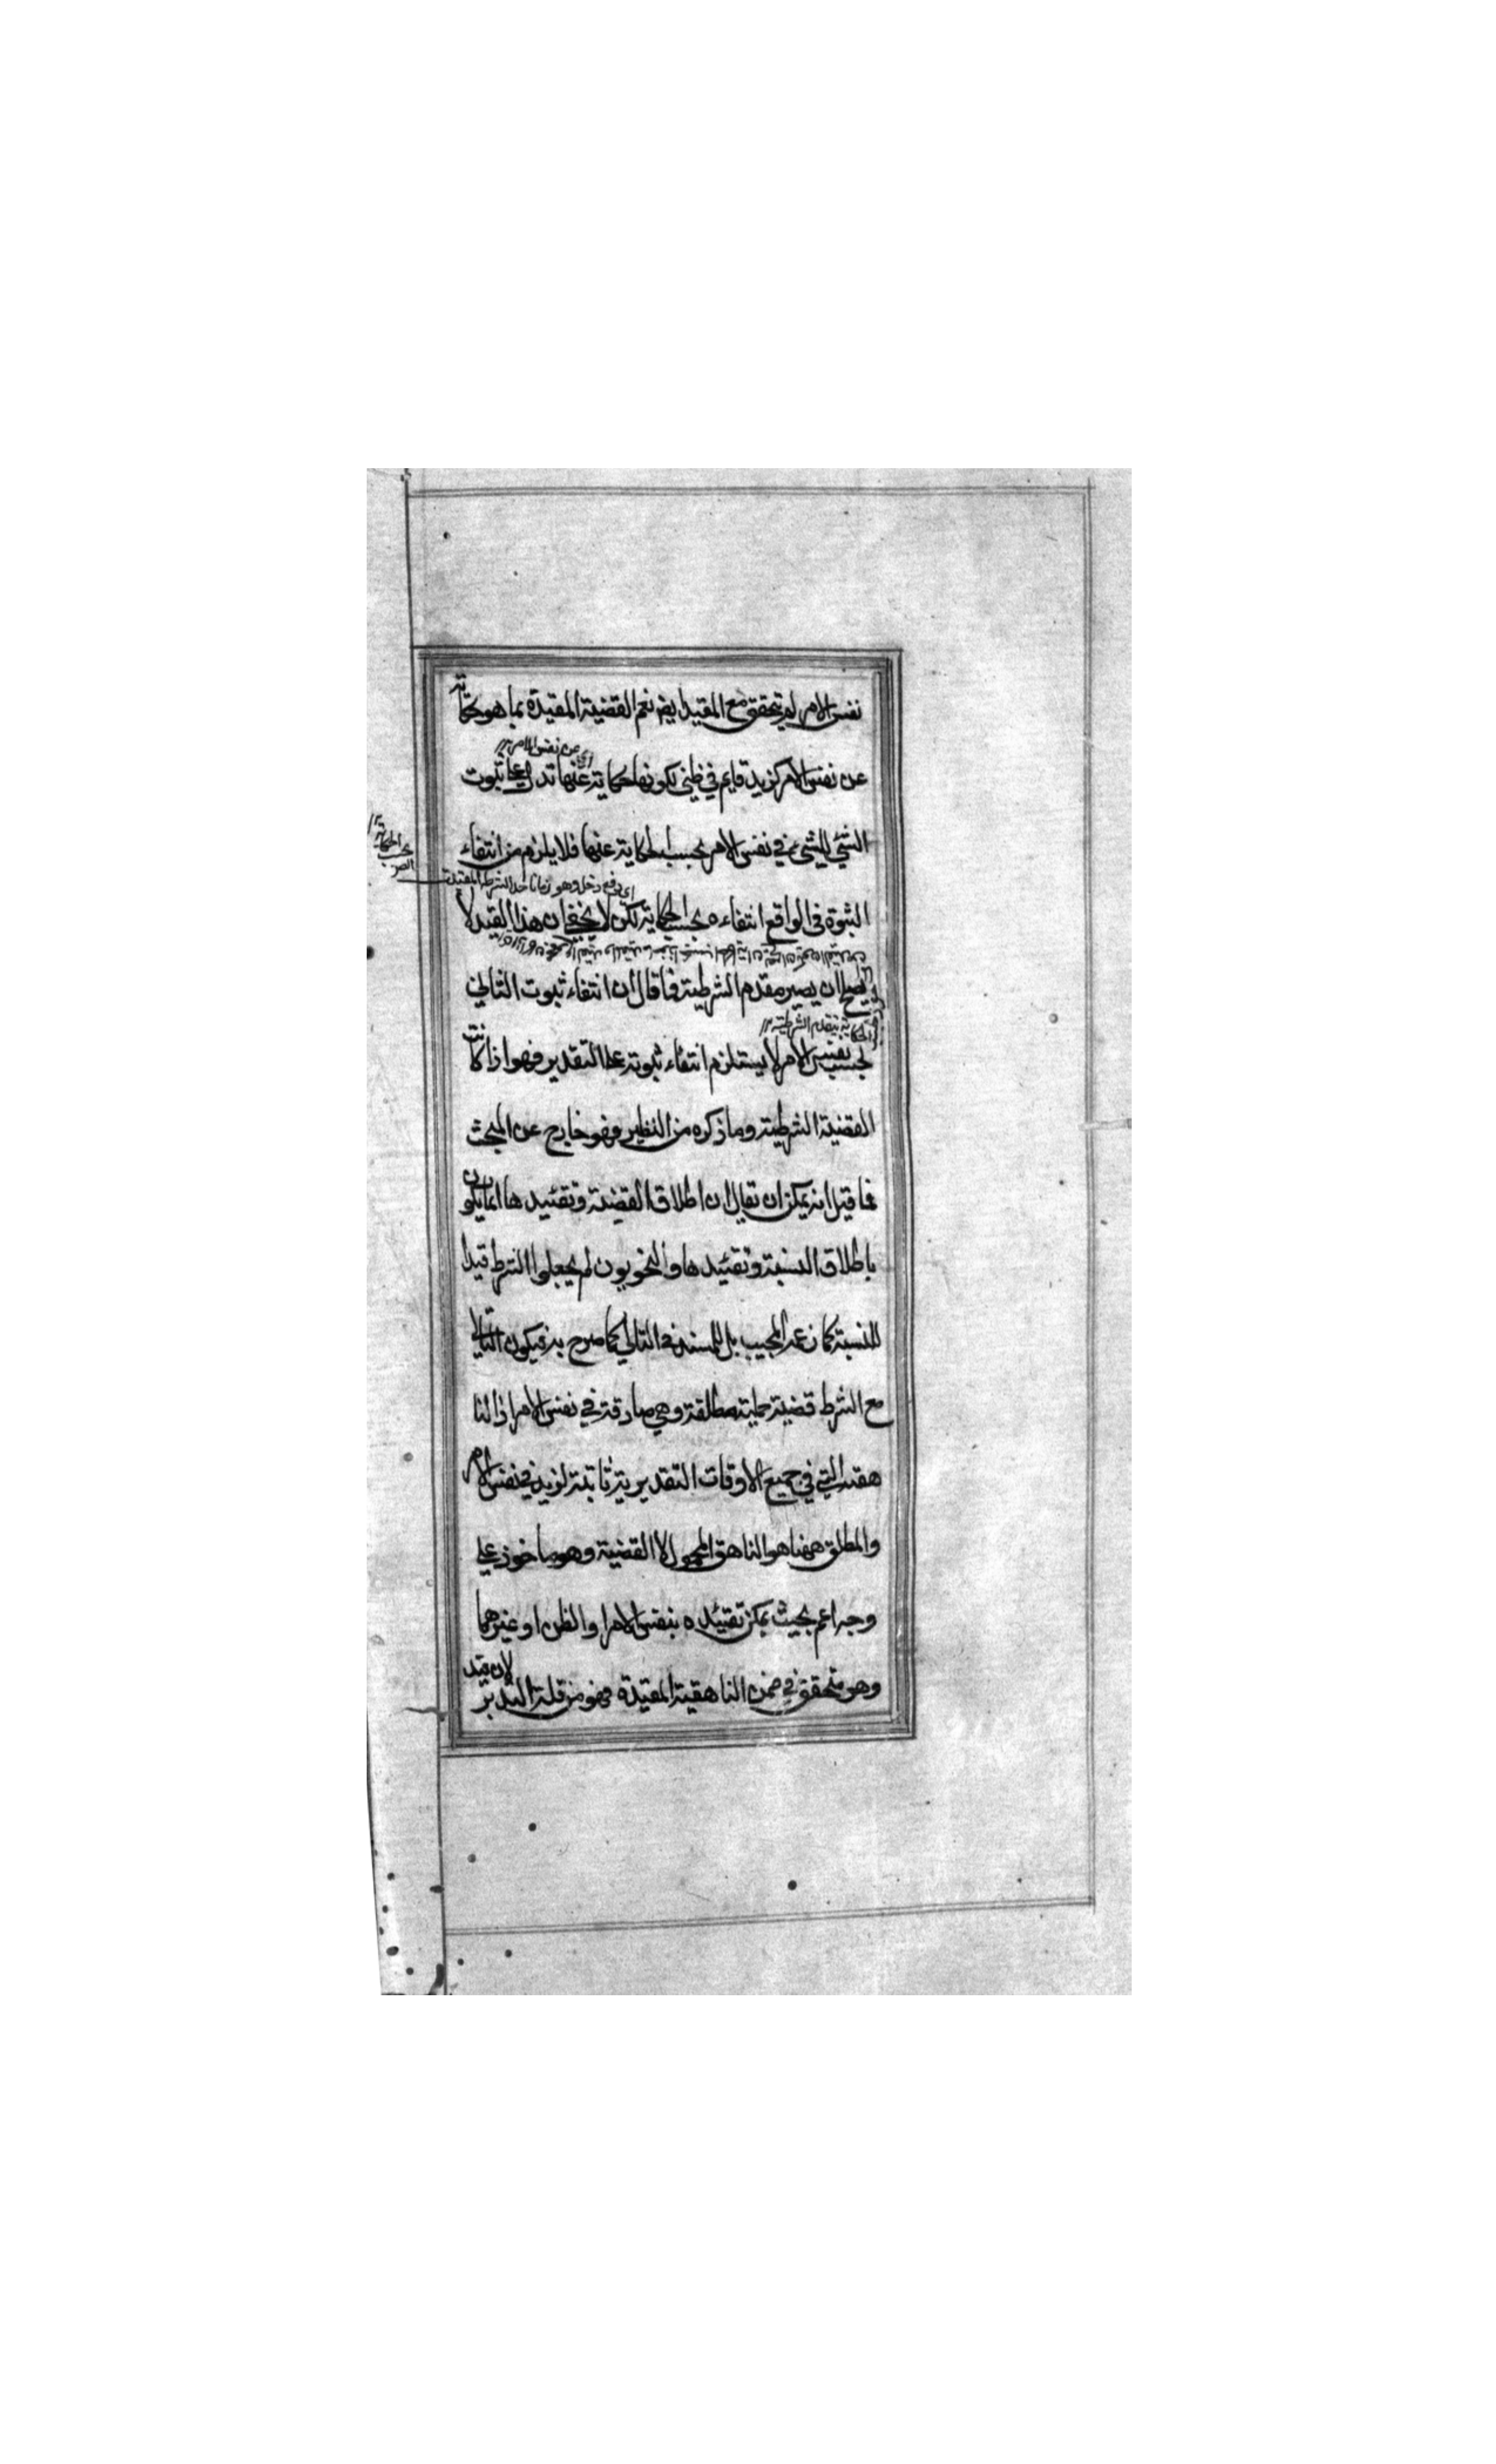 نفس الامر لم يتحقق مع المقيد ايضا نعم القضية المقيدة بما هو حكاية
عن نفس الامر
عن نفس الامر كزيد قايم في ظني لكونها حكاية عنها تدل على ثبوت
الشئ للشئ في نفس الامر بحسب الحكاية عنها فلا يلزم من انتفاء
الثبوة في الواقع انتفاءه بحسب الحكاية لكن لا يخفى ان هذا القيد لا
يصلح ان يصير مقدم الشرطية فما قال ان انتفاء ثبوت التالى
بحسب نفس الامر لا يستلزم انتفاء ثبوته على التقدير فهو اذا كانت
القضية الشرطية وما ذكره من النظير فهو خارج عن المبحث
فما قيل انه يمكن ان يقال ان اطلاق القضية وتقئيد ها انما يكون
باطلاق النسبة وتقئيد ها والنحويون لم يجعلوا الشرط قيدا
للنسبة كما زعم المجيب بل للمسند في التالي كما صرح به فيكون التالي
مع الشرط قضية حملية مطلقة وهي صادقة في نفس الامر اذ النا
هقية التي في جميع الاوقات التقديرية ثابتة لزيد في نفس الامر
والمطلق ههنا هو الناهق المحمول لا القضية وهو ماخوذ على
وجه اعم بحيث يمكن تقئيده بنفس الامر او الظن او غيرهما
وهو متحقق في ضمن الناهقية المقيدة فهو من قلة التدبر
لان قيد